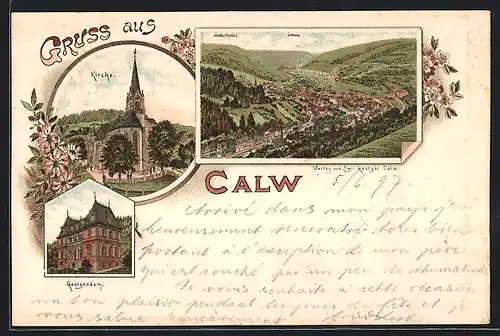 GRUSS AUS
Kirche.
HIRSAU
Verlag von Emil Georgii Calw.
CALW
5/6.97
Arrivé dans mon pays j'ai
heureusement rencontré tous bien
portant à l'exception de mon père
qui est couché par un peu de rhumatisme
Je vous souhaite à cette occasion
un bon plaisir pendant les jours de fête et je
vous salue
Georgenäum.